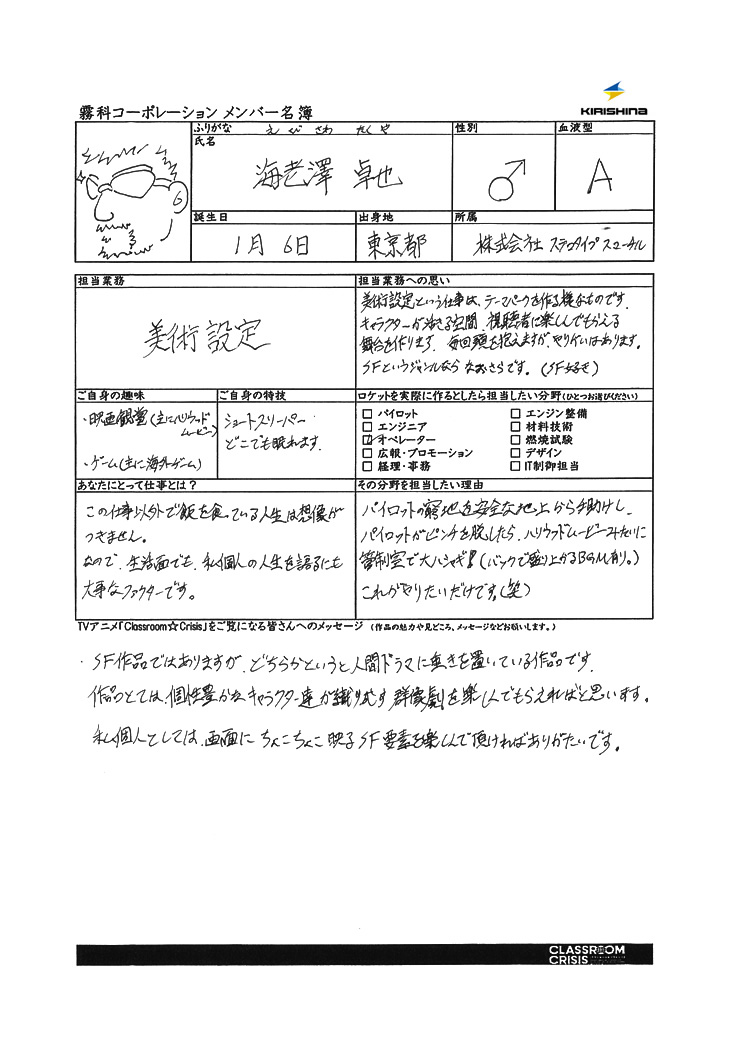 KIRISHINA
霧科コーポレーション メンバー名簿
ふりがな えびさわ たくや
氏名
海老澤 卓也
性別
♂
血液型
A
誕生日
1月 6日
出身地
東京都
所属
株式会社 ステロタイプ
担当業務
美術設定
担当業務への思い
美術設定という仕事は、テーマパークを作る様なものです。
キャラクターが活きる空間、視聴者に楽しんでもらえる
舞台を作ります。毎回頭を抱えますが、やりがいはあります。
SFというジャンルなら なおさらです。(SF好き)
ご自身の趣味
・映画観賞(主にハリウッド
ムービー)
・ゲーム(主に海外ゲーム)
ご自身の特技
ショートスリーパー
どこでも眠れます。
ロケットを実際に作るとしたら担当したい分野(ひとつお選びください)
□ パイロット
□ エンジニア
☑ オペレーター
□ 広報・プロモーション
□ 経理・事務
□ エンジン整備
□ 材料技術
□ 燃焼試験
□ デザイン
□ IT制御担当
あなたにとって仕事とは?
この仕事以外で飯を食っている人生は想像が
つきません。
なので、生活面でも、私個人の人生を語るにも
大事なファクターです。
その分野を担当したい理由
パイロットの窮地を安全な地上から手助けし、
パイロットがピンチを脱したら、ハリウッドムービーみたいに
管制室で大ハシャギ!(バックで盛り上がるBGM有り。)
これがやりたいだけです。(笑)
TVアニメ「Classroom☆Crisis」をご覧になる皆さんへのメッセージ (作品の魅力や見どころ、メッセージなどお願いします。)
・SF作品ではありますが、どちらかというと人間ドラマに重きを置いている作品です。
作品としては、個性豊かなキャラクター達が織りなす群像劇を楽しんでもらえればと思います。
私個人としては、画面にちょこちょこ映るSF要素を楽しんで頂ければありがたいです。
CLASSROOM
CRISIS